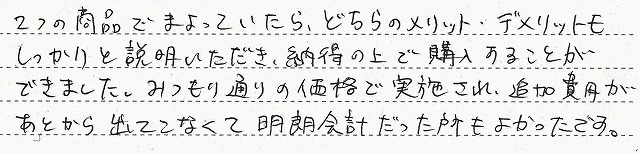 2つの商品でまよっていたら、どちらのメリット・デメリットも
しっかりと説明いただき、納得の上で購入することが
できました。みつもり通りの価格で実施され、追加費用が
あとから出てこなくて明朗会計だった所もよかったです。